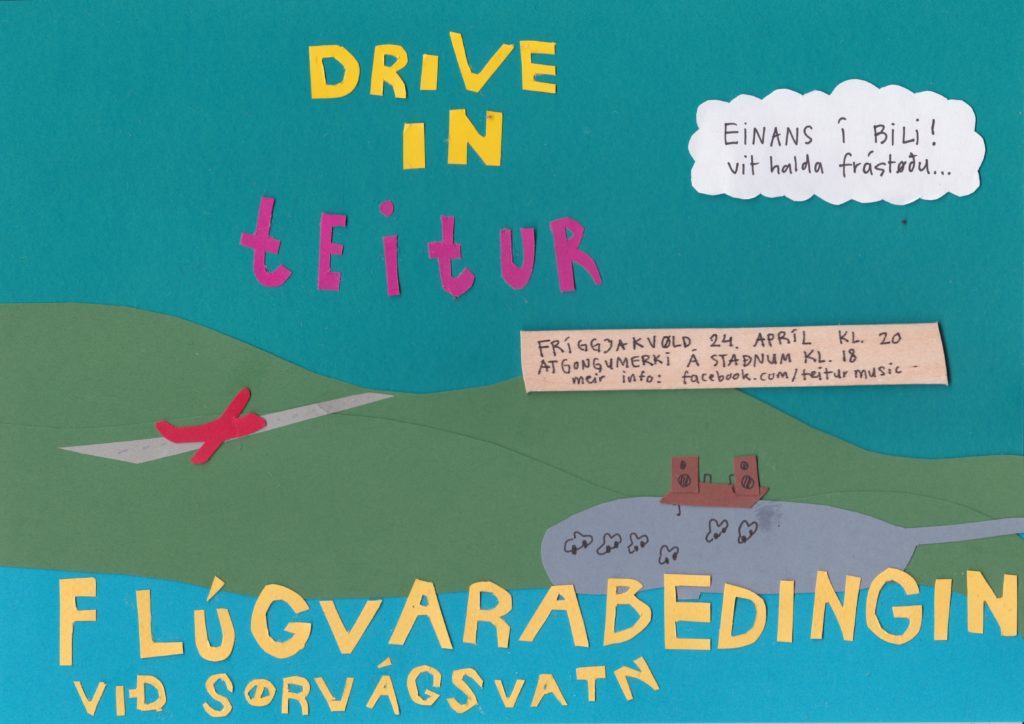 DRIVE
IN
tEitUR
EINANS Í BILI!
vit halda frástøðu...
FRÍGGJAKVØLD 24. APRÍL KL. 20
ATGONGUMERKI Á STAÐNUM KL. 18
meir info: facebook.com/teiturmusic
FLÚGVARABEDINGIN
VIÐ SØRVÁGSVATN